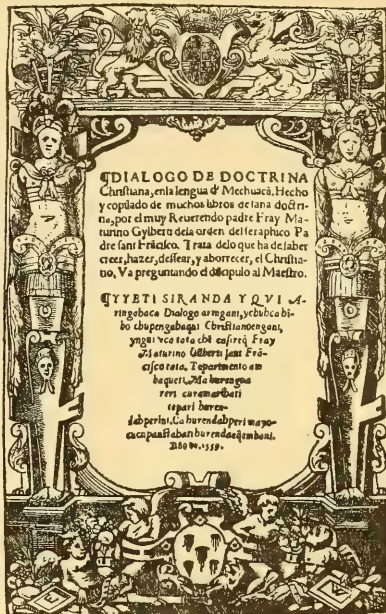 ¶DIALOGO DE DOCTRINA
Christiana, enla lengua d' Mechuacã. Hecho
y copilado de muchos libros de sana doctri-
na, por el muy Reuerendo padre Fray Ma-
turino Gylberti dela orden del seraphico Pa
dre sant Frãcisco. Trata delo que ha de saber
creer, hazer, dessear, y aborrecer, el Christia-
no, Va preguntando el discipulo al Maestro.
¶YYETI SIRANDA Y QVI A-
ringahaca Dialogo aringani, ychuhca hi-
bo chupengahaqui Christianoengani,
yngui vca tata chē casireq̄ Fray
Maturino Gilberti sant Frã-
cisco tata, Teparimento am
baqueti, Ma hurengua
reri curamarihati
tepari huren-
dahperini, Ca hurendahperi mayo-
cucupanstahati hurendaeq̄mbani.
Año de. 1559.